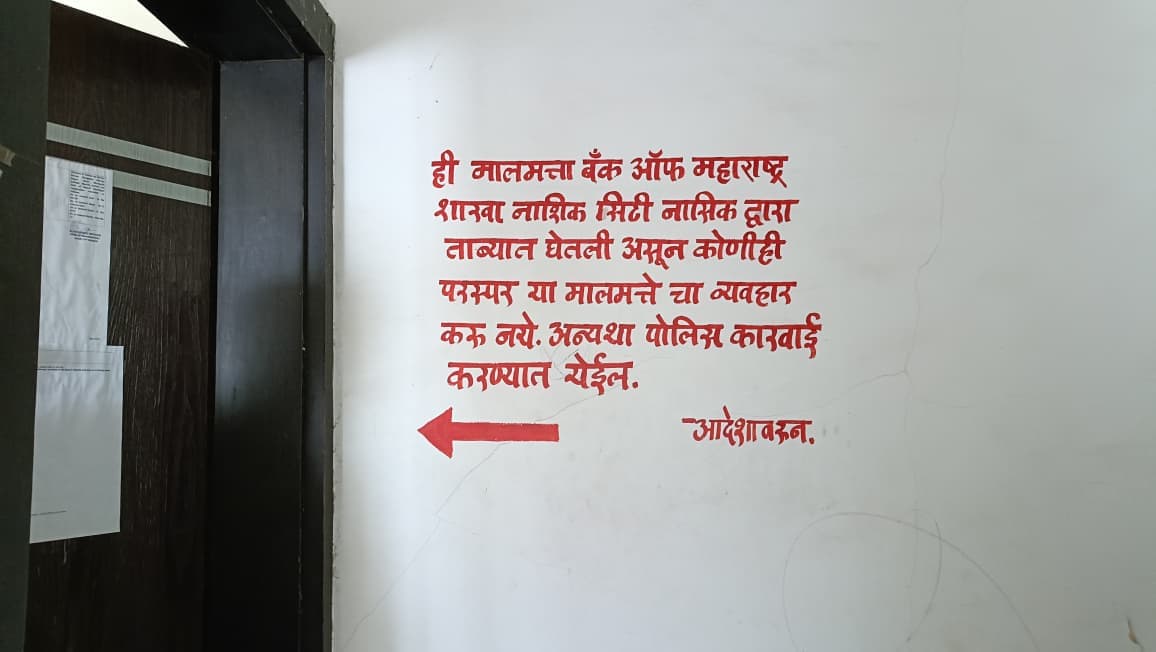 ही मालमत्ता बँक ऑफ महाराष्ट्र
शाखा नाशिक सिटी नासिक द्वारा
ताब्यात घेतली असून कोणीही
परस्पर या मालमत्ते चा व्यवहार
करु नये. अन्यथा पोलिस कारवाई
करण्यात येईल.
-आदेशावरुन.